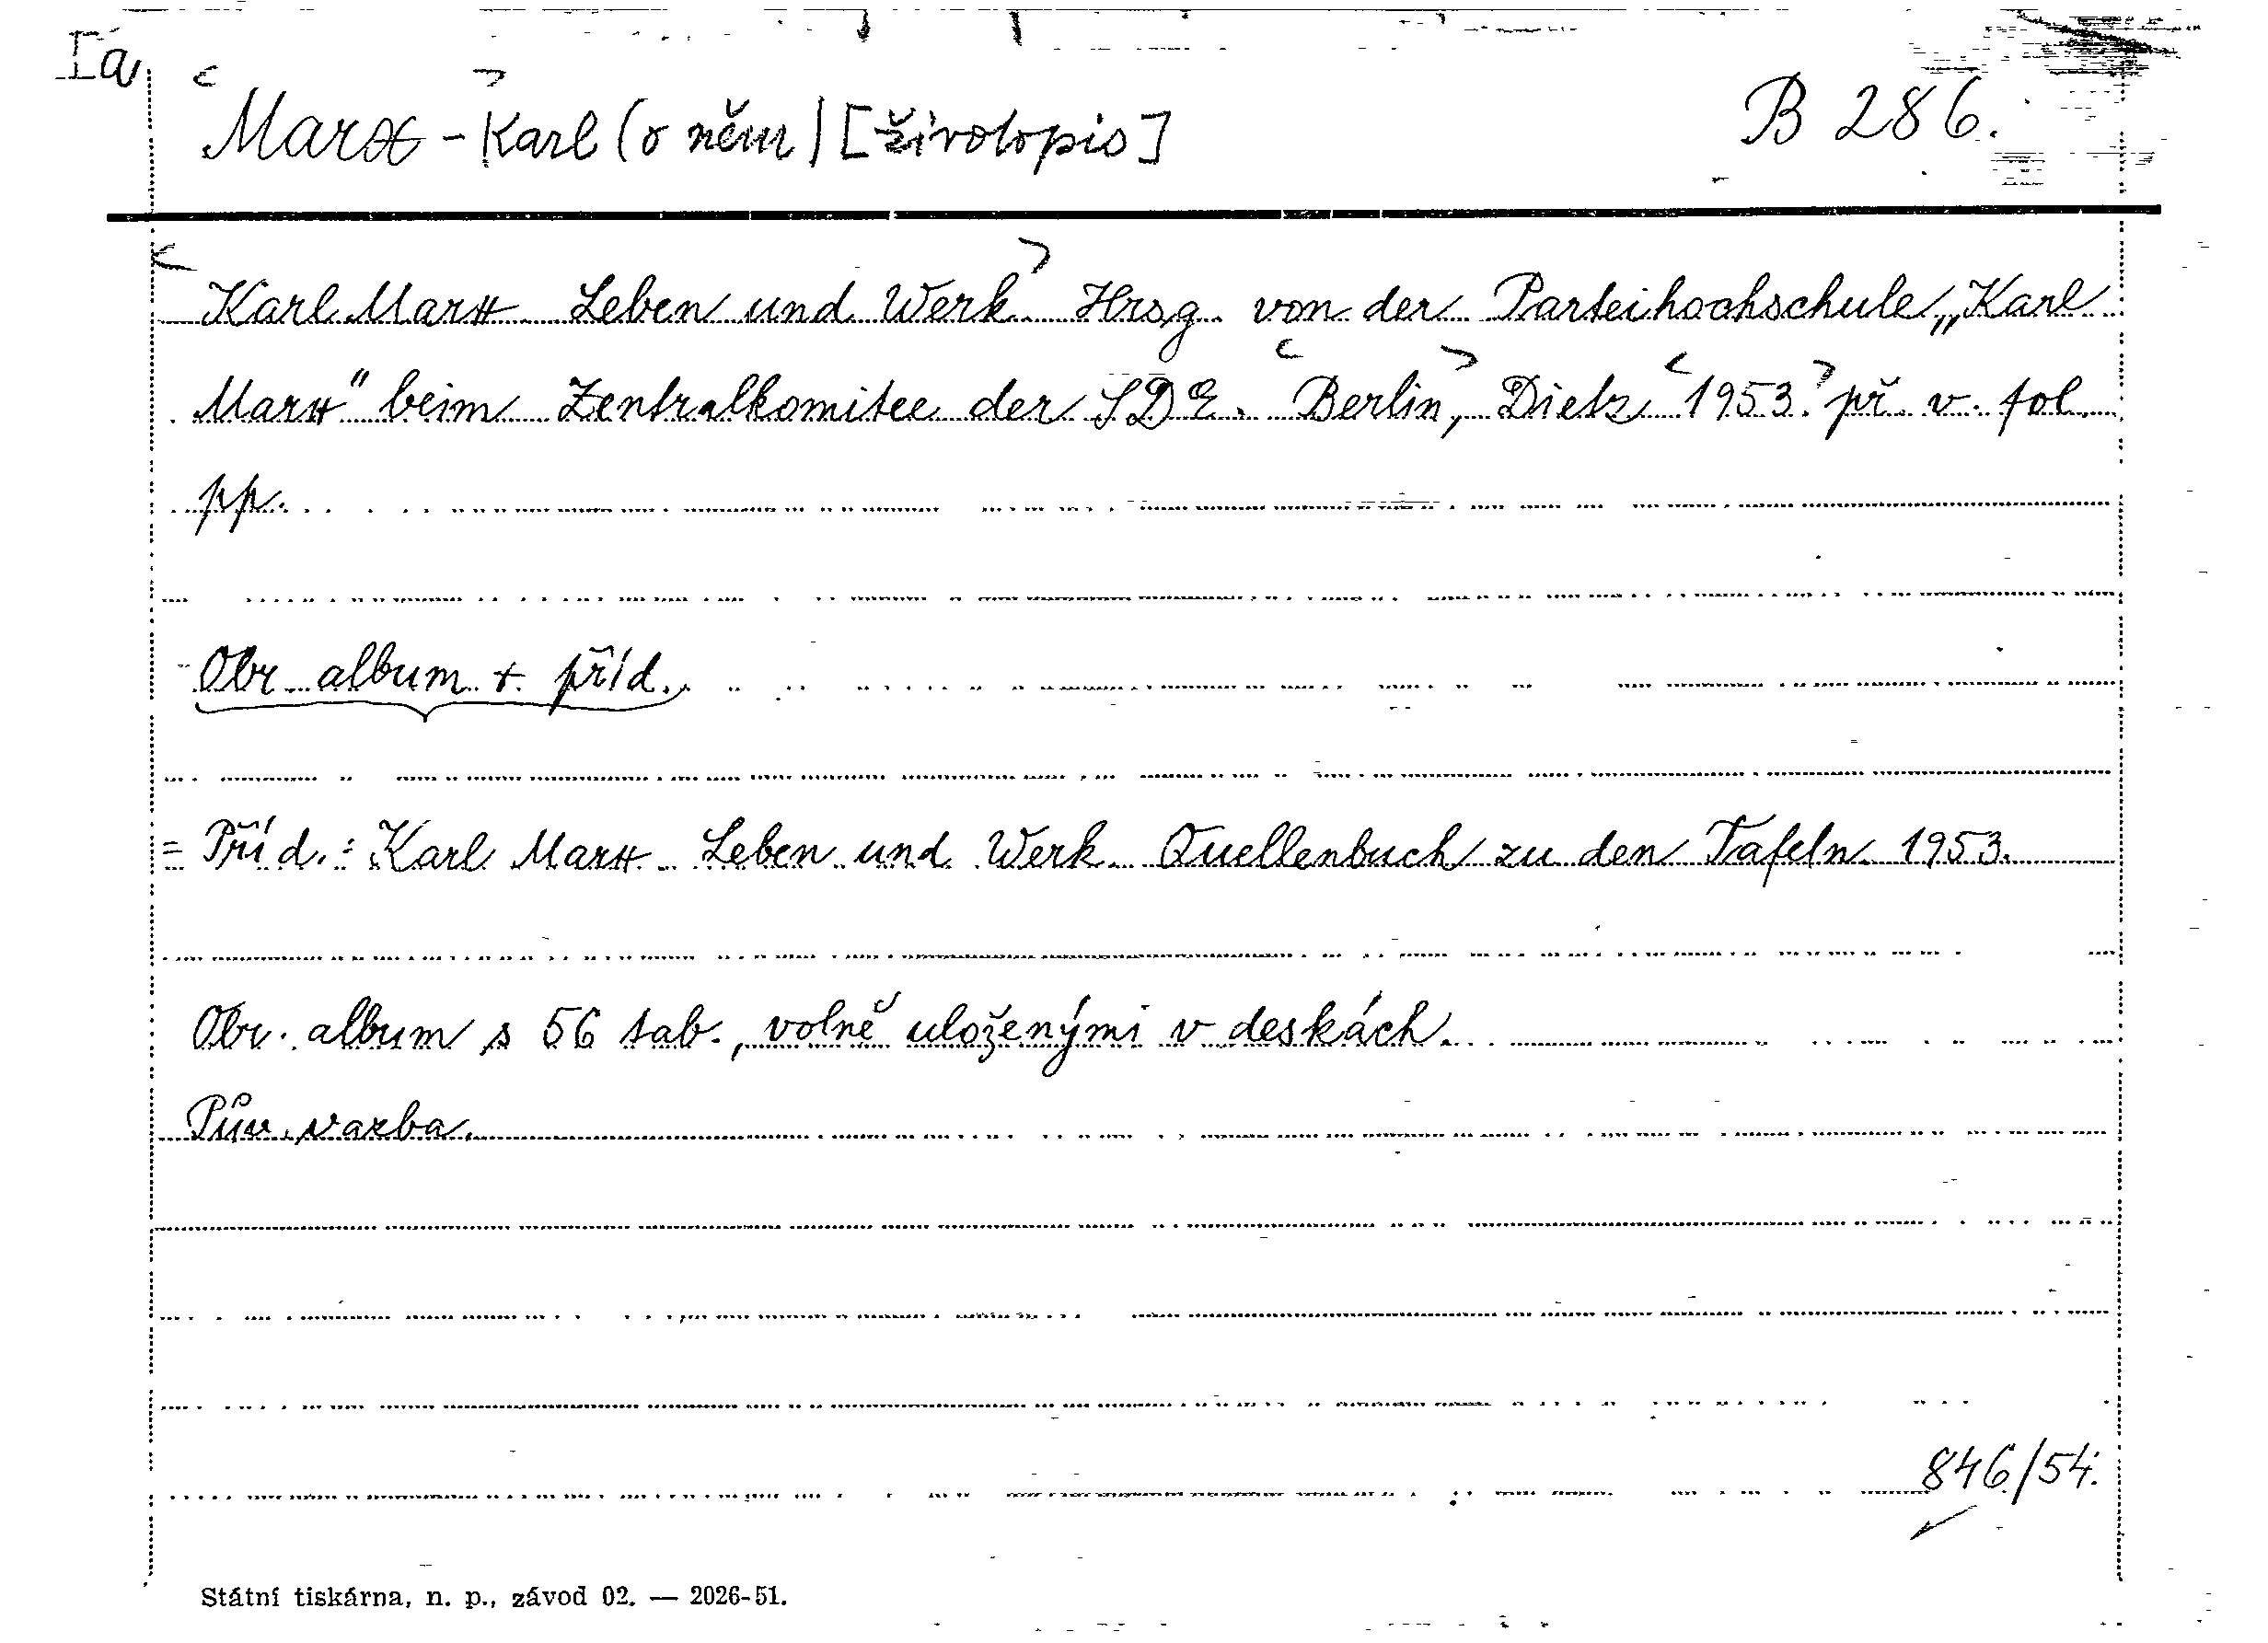 Ia
Marx - Karl (o něm) [životopis]
B 286.
Karl Marx Leben und Werk Hrsg. von der Parteihochschule „Karl
Marx" beim Zentralkomitee der SDE. Berlin, Dietz 1953. př. v. fol.
pp.
Obr. album + příd.
= Příd.: Karl Marx Leben und Werk Quellenbuch zu den Tafeln. 1953.
Obr. album s 56 tab., volně uloženými v deskách.
Pův. vazba.
846/54.
Státní tiskárna, n. p., závod 02. — 2026-51.